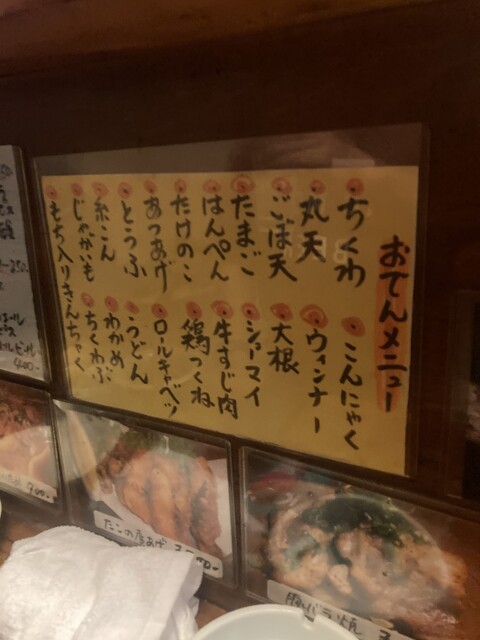 おでんメニュー
ちくわ
こんにゃく
丸天
ウィンナー
ごぼ天
大根
たまご
シューマイ
はんぺん
牛すじ肉
たけのこ
鶏つくね
あつあげ
ロールキャベツ
とうふ
うどん
糸こん
わかめ
じゃがいも
ちくわぶ
もち入りきんちゃく
たこの唐あげ
豚バラ焼